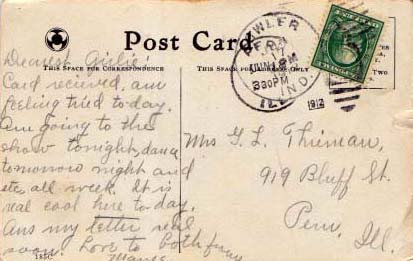 Post Card
THIS SPACE FOR CORRESPONDENCE
THIS SPACE FOR ADDRESS ONLY
TWO
830PM
IND.
ILL
1912
Dearest Girlie:
Card recieved. am
feeling tired to-day.
Am going to the
show tonight, dance
tomorrow night and
etc, all week. It is
real cool here to-day.
Ans my letter real
soon. Love to both from
Mrs G. L. Thieman,
919 Bluff St.
Peru, Ill.